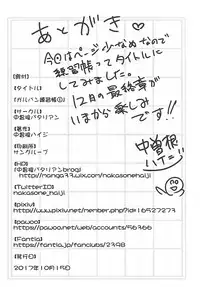 あとがき♡
今回はページ少なめなので
練習帳ってタイトルに
してみました。
12月の最終章が
いまから楽しみ
です!!
中曽根
ハイジ
【資料】
【タイトル】
【ガルパン練習帳①】
【サークル】
中曽根バタリアン
【著者】
中曽根ハイジ
【印刷所】
サングループ
【HP】
【中曽根バタリアンblog】
http://nanga33.wix.com/nakasonehaiji
【TwitterID】
nakasone_haiji
【pixiv】
http://www.pixiv.net/member.php?id=16527273
【pawoo】
https://pawoo.net/web/accounts/56366
【Fantia】
https://fantia.jp/fanclubs/2398
【発行日】
2017年10月15日